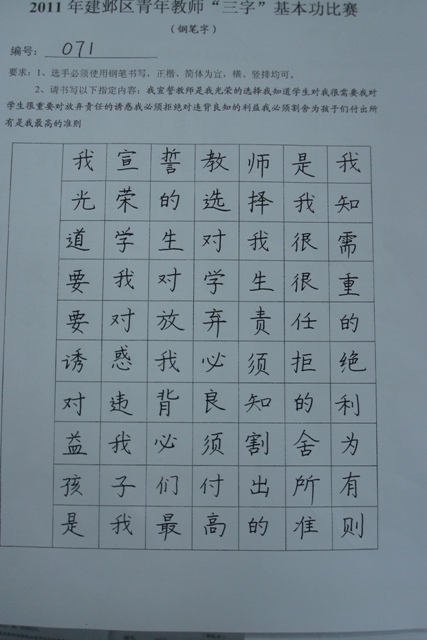 2011 年建邺区青年教师“三字”基本功比赛
（钢笔字）
编号： 071
要求：1、选手必须使用钢笔书写，正楷、简体为宜，横、竖排均可。
2、请书写以下指定内容：我宣誓教师是我光荣的选择我知道学生对我很需要我对
学生很重要对放弃责任的诱惑我必须拒绝对违背良知的利益我必须割舍为孩子们付出所
有是我最高的准则
我宣誓教师是我
光荣的选择我知
道学生对我很需
要我对学生很重
要对放弃责任的
诱惑我必须拒绝
对违背良知的利
益我必须割舍为
孩子们付出所有
是我最高的准则